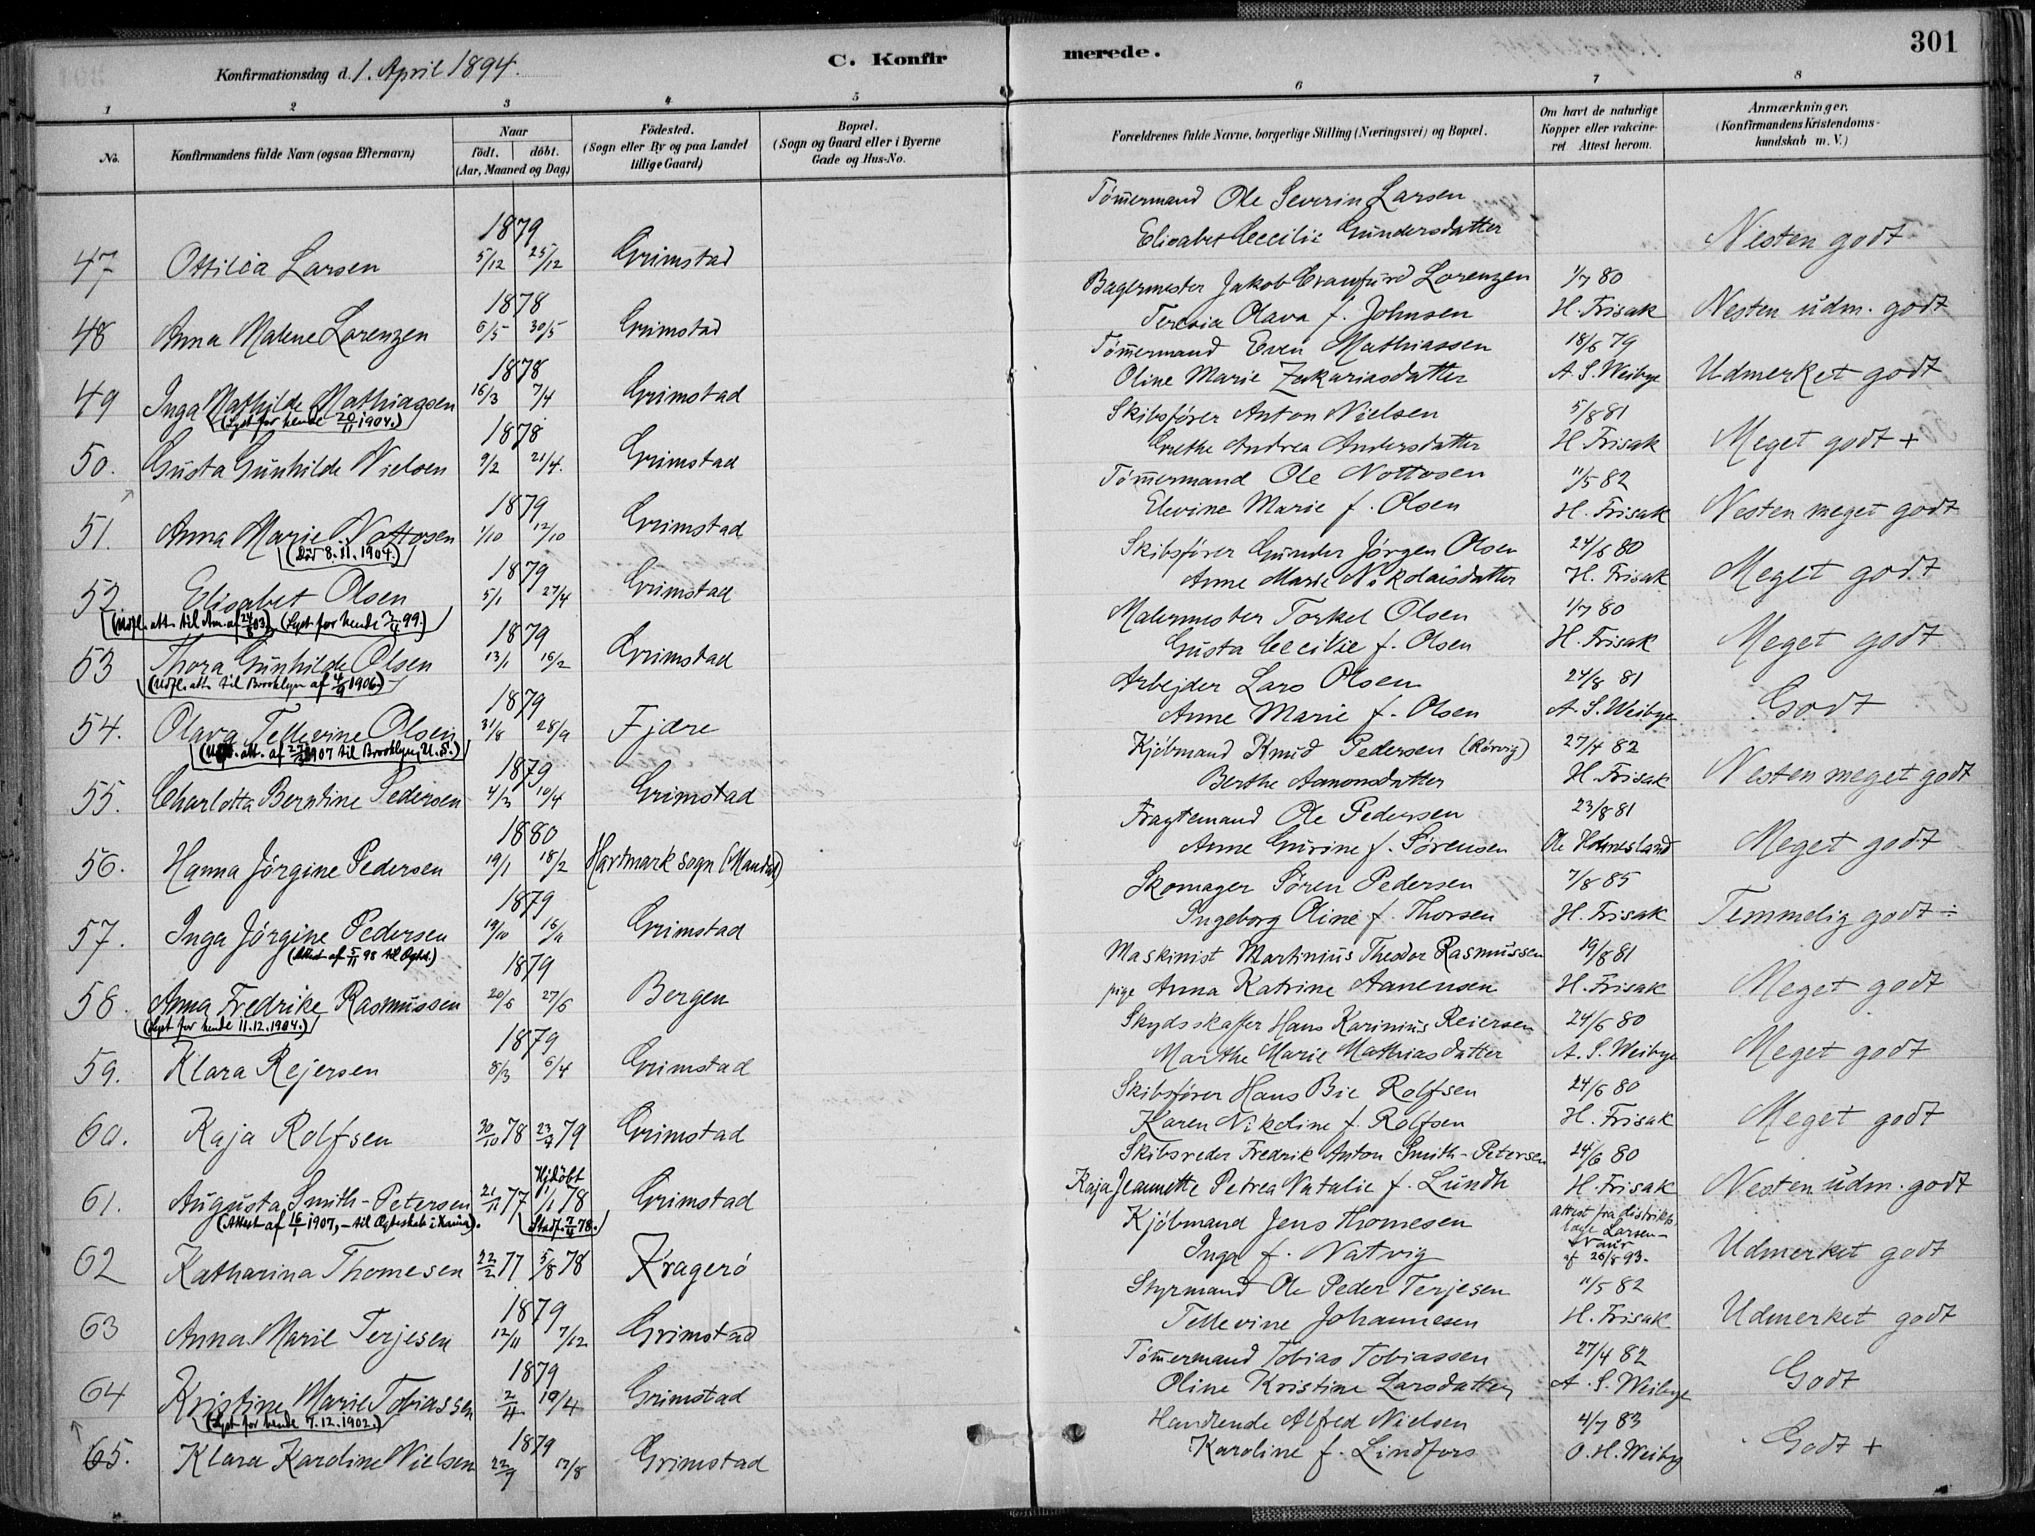 301
Konfirmationsdag d. 1. April 1894.
C. Konfirmerede.
1 2 3 4 5 6 7 8
No.
Konfirmandens fulde Navn (ogsaa Efternavn)
Naar
födt. döbt.
(Aar, Maaned og Dag)
Födested.
(Sogn eller By og paa Landet
tillige Gaard)
Bopæl.
(Sogn og Gaard eller i Byerne
Gade og Hus-No.
Forældrenes fulde Navne, borgerlige Stilling (Næringsvei) og Bopæl.
Om havt de naturlige
Kopper eller vakcine-
ret Attest herom.
Anmærkninger.
(Konfirmandens Kristendoms-
kundskab m. V.)
47 Ottilia Larsen 1879 5/12 25/12 Grimstad
Tömermand Ole Severin Larsen
Elisabet Cecilie Gundersdatter
Nesten godt
48 Anna Malene Lorenzen 1878 6/5 30/5 Grimstad
Bagermester Jakob Craufurd Lorenzen 1/7 80
Teresia Olava f. Johnsen H. Frisak
Nesten udm. godt
49 Inga Mathilde Mathiassen 1878 16/3 7/4 Grimstad
(Lyst for hende 20/11 1904.)
Tömermand Even Mathiassen 18/6 79
Oline Marie Zakariasdatter A. S. Weibye
Udmerket godt
50. Gusta Gunhilde Nielsen 1878 9/2 21/4. Grimstad
Skibsförer Anton Nielsen 5/8 81
Grethe Andrea Andersdatter H. Frisak
Meget godt +
51. Anna Marie Nottosen 1879 1/10 12/10 Grimstad
(Död 8.11.1904.)
Tömermand Ole Nottosen 11/5 82
Elevine Marie f. Olsen H. Frisak
Nesten meget godt
52 Elisabet Olsen 1879 5/1 27/4 Grimstad
(Udfl. att. til Am. af 24/8 03) (Lyst for hende 99.)
Skibsförer Gunder Jörgen Olsen 24/6 80
Anne Marie Nikolaisdatter H. Frisak
Meget godt
53 Thora Gunhilde Olsen 1879 13/1 16/2 Grimstad
(Udfl. att. til Brooklyn af 4/9 1906.)
Malermester Torkel Olsen 1/7 80
Gusta Cecilie f. Olsen H. Frisak
Meget godt
54. Olava Tellevine Olsen 1879 31/8 28/9 Fjære
(Udfl. att. af 1907 til Brooklyn, U. S.)
Arbejder Lars Olsen 24/8 81
Anne Marie f. Olsen A. S. Weibye
Godt
55. Charlotta Berntine Pedersen 1879 4/3 10/4 Grimstad
Kjöbmand Knud Pedersen (Rörvig) 27/4 82
Berthe Aanonsdatter H. Frisak
Nesten meget godt
56. Hanna Jörgine Pedersen 1880 19/1 18/2 Hartmark sogn (Mandal)
Fragtemand Ole Pedersen 23/8 81
Anne Gurine f. Sörensen Ole Holmesland
Meget godt
57. Inga Jörgine Pedersen 1879 19/10 16/11 Grimstad
(Attest af 5/11 98 til Ægtsk.)
Skomager Sören Pedersen 7/8 85
Ingeborg Oline f. Thorsen H. Frisak
Temmelig godt ÷
58. Anna Fredrike Rasmussen 1879 20/6 27/6 Bergen
(Lyst for hende 11.12.1904.)
Maskinist Martinius Theodor Rasmussen 19/8 81
pige Anna Katrine Aanensen H. Frisak
Meget godt
59. Klara Rejersen 1879 8/3 6/4 Grimstad
Skydsskaffer Hans Karinius Reiersen 24/6 80
Marthe Marie Mathiasdatter A. S. Weibye
Meget godt
60. Kaja Rolfsen 30/10 78 23/4 79 Grimstad
Skibsförer Hans Bie Rolfsen 24/6 80
Karen Nikoline f. Rolfsen H. Frisak
Meget godt
61. Augusta Smith-Petersen 21/11 77 Hjdöbt 1/1 78 Grimstad
(Attest af 16/1 1907, – til Ægteskab i Xania). (Stadf. 7/4 78.)
Skibsreder Fredrik Anton Smith-Petersen 24/6 80
Kaja Jeannette Petrea Natalie f. Lundh H. Frisak
Nesten udm. godt
62 Katharina Thomesen 22/2 77 5/8 78 Kragerö
Kjöbmand Jens Thomesen attest fra distrikts
Inga f. Natvig læge Larsen-
Naur
af 26/8 93.
Udmerket godt
63 Anna Marie Terjesen 1879 12/11 7/12 Grimstad
Styrmand Ole Peder Terjesen 11/5 82
Tellevine Johannesen H. Frisak
Udmerket godt
64 Kristine Marie Tobiassen 1879 2/4 19/4 Grimstad
(Lyst for hende 7.12.1902.)
Tömermand Tobias Tobiassen 27/4 82
Oline Kristine Larsdatter A. S. Weibye
Godt
65. Klara Karoline Nielsen 1879 22/9 17/8 Grimstad
Handlende Alfred Nielsen 4/7 83
Karoline f. Lindfors O. H. Weiby
Godt +